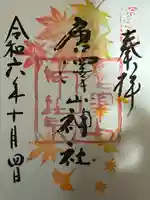 奉拝
唐澤山神社
令和六年十月四日